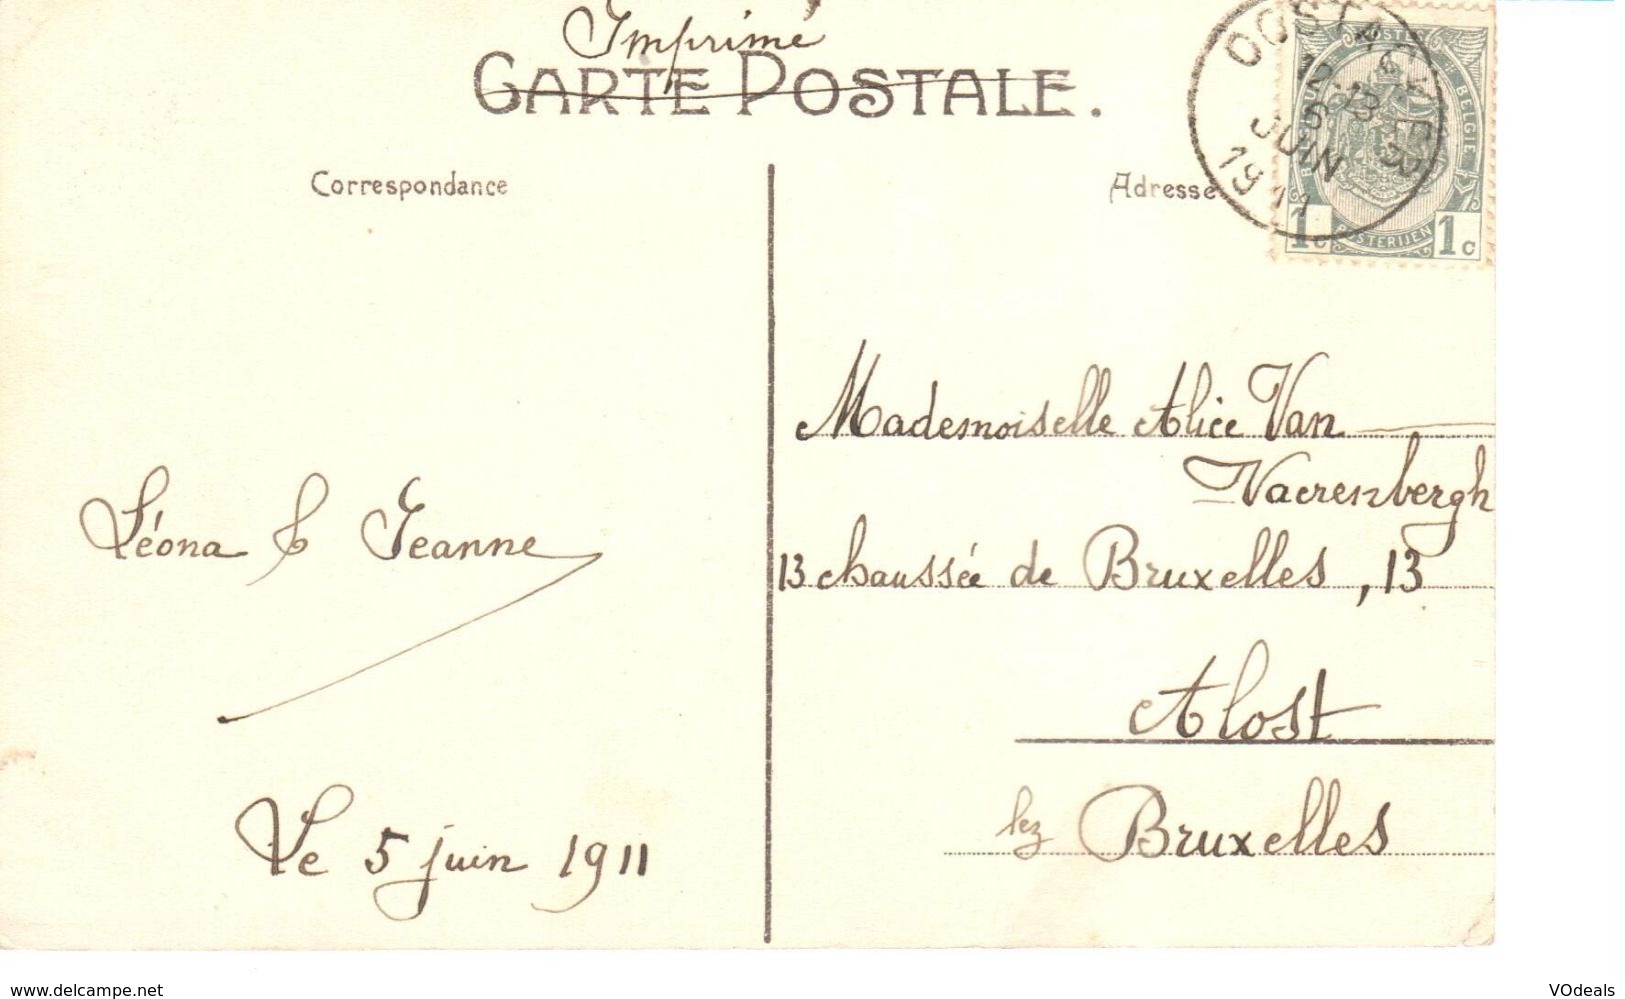 Imprimé
CARTE POSTALE.
OOSTACKER
12-13
5
JUIN
1911
BELGIE
1c POSTERIJEN 1c
Correspondance
Adresse
Mademoiselle Alice Van
Vaerenbergh
13 chaussée de Bruxelles, 13
Alost
lez Bruxelles
Léona & Jeanne
Le 5 juin 1911
www.delcampe.net
VOdeals